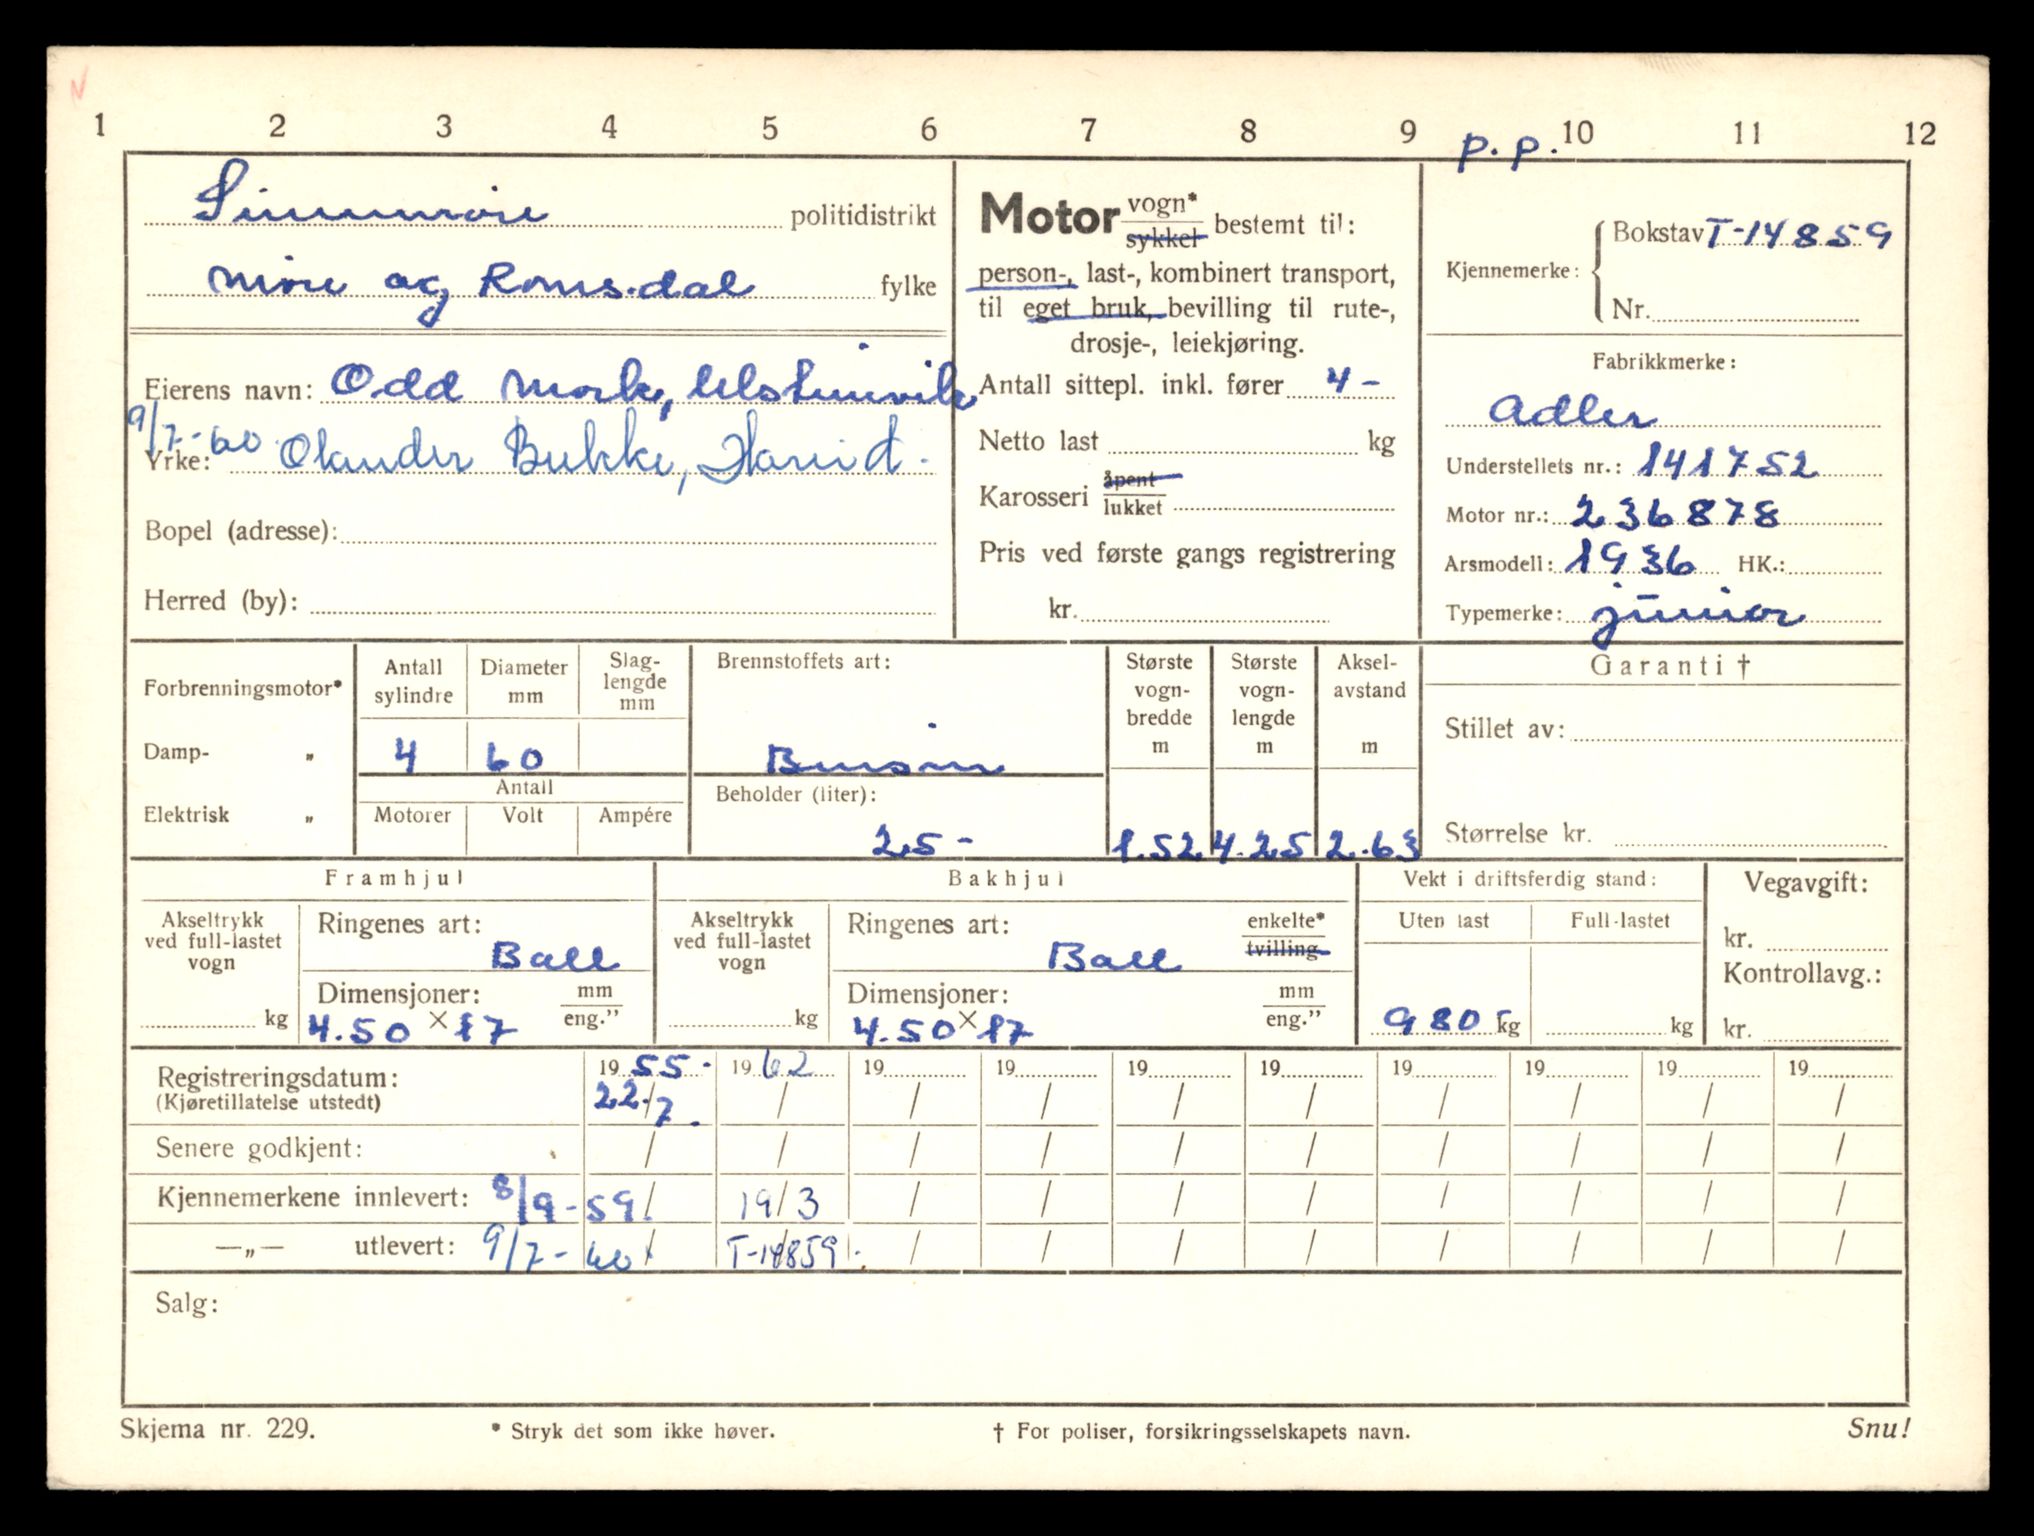 1 2 3 4 5 6 7 8 9 10 11 12
p.p.
Sunnmøre politidistrikt
Møre og Romsdal fylke
Eierens navn: Odd Mork, Ulsteinvik
9/7-60 Olander Bukke, Hareid.
Yrke:
Bopel (adresse):
Herred (by):
Motor vogn* sykkel bestemt til:
person-, last-, kombinert transport,
til eget bruk, bevilling til rute-,
drosje-, leiekjøring.
Antall sittepl. inkl. fører 4-
Netto last kg
Karosseri åpent lukket
Pris ved første gangs registrering
kr.
Kjennemerke: Bokstav T-14859
Nr.
Fabrikkmerke:
Adler
Understellets nr.: 141752
Motor nr.: 236878
Arsmodell: 1936 HK.:
Typemerke: junior
Forbrenningsmotor*
Damp- „
Elektrisk „
Antall sylindre 4
Diameter mm 60
Slag-lengde mm
Antall
Motorer Volt Ampére
Brennstoffets art:
Bensin
Beholder (liter):
25-
Største vogn-bredde m 1.52
Største vogn-lengde m 4.25
Aksel-avstand m 2.63
Garanti †
Stillet av:
Størrelse kr.
Framhjul
Akseltrykk ved full-lastet vogn kg
Ringenes art: Ball
Dimensjoner: mm eng.”
4.50 × 17
Bakhjul
Akseltrykk ved full-lastet vogn kg
Ringenes art: enkelte* tvilling
Ball
Dimensjoner: mm eng.”
4.50 × 17
Vekt i driftsferdig stand:
Uten last Full-lastet
980 kg kg
Vegavgift:
kr.
Kontrollavg.:
kr.
Registreringsdatum: 1955. 1962 19 19 19 19 19 19 19 19
(Kjøretillatelse utstedt) 22./7. / / / / / / / / /
Senere godkjent: / / / / / / / / / /
Kjennemerkene innlevert: 8/9-59. / 19/3 / / / / / / / /
—„— utlevert: 9/7-60 / T-14859. / / / / / / / /
Salg:
Skjema nr. 229. * Stryk det som ikke høver. † For poliser, forsikringsselskapets navn. Snu!